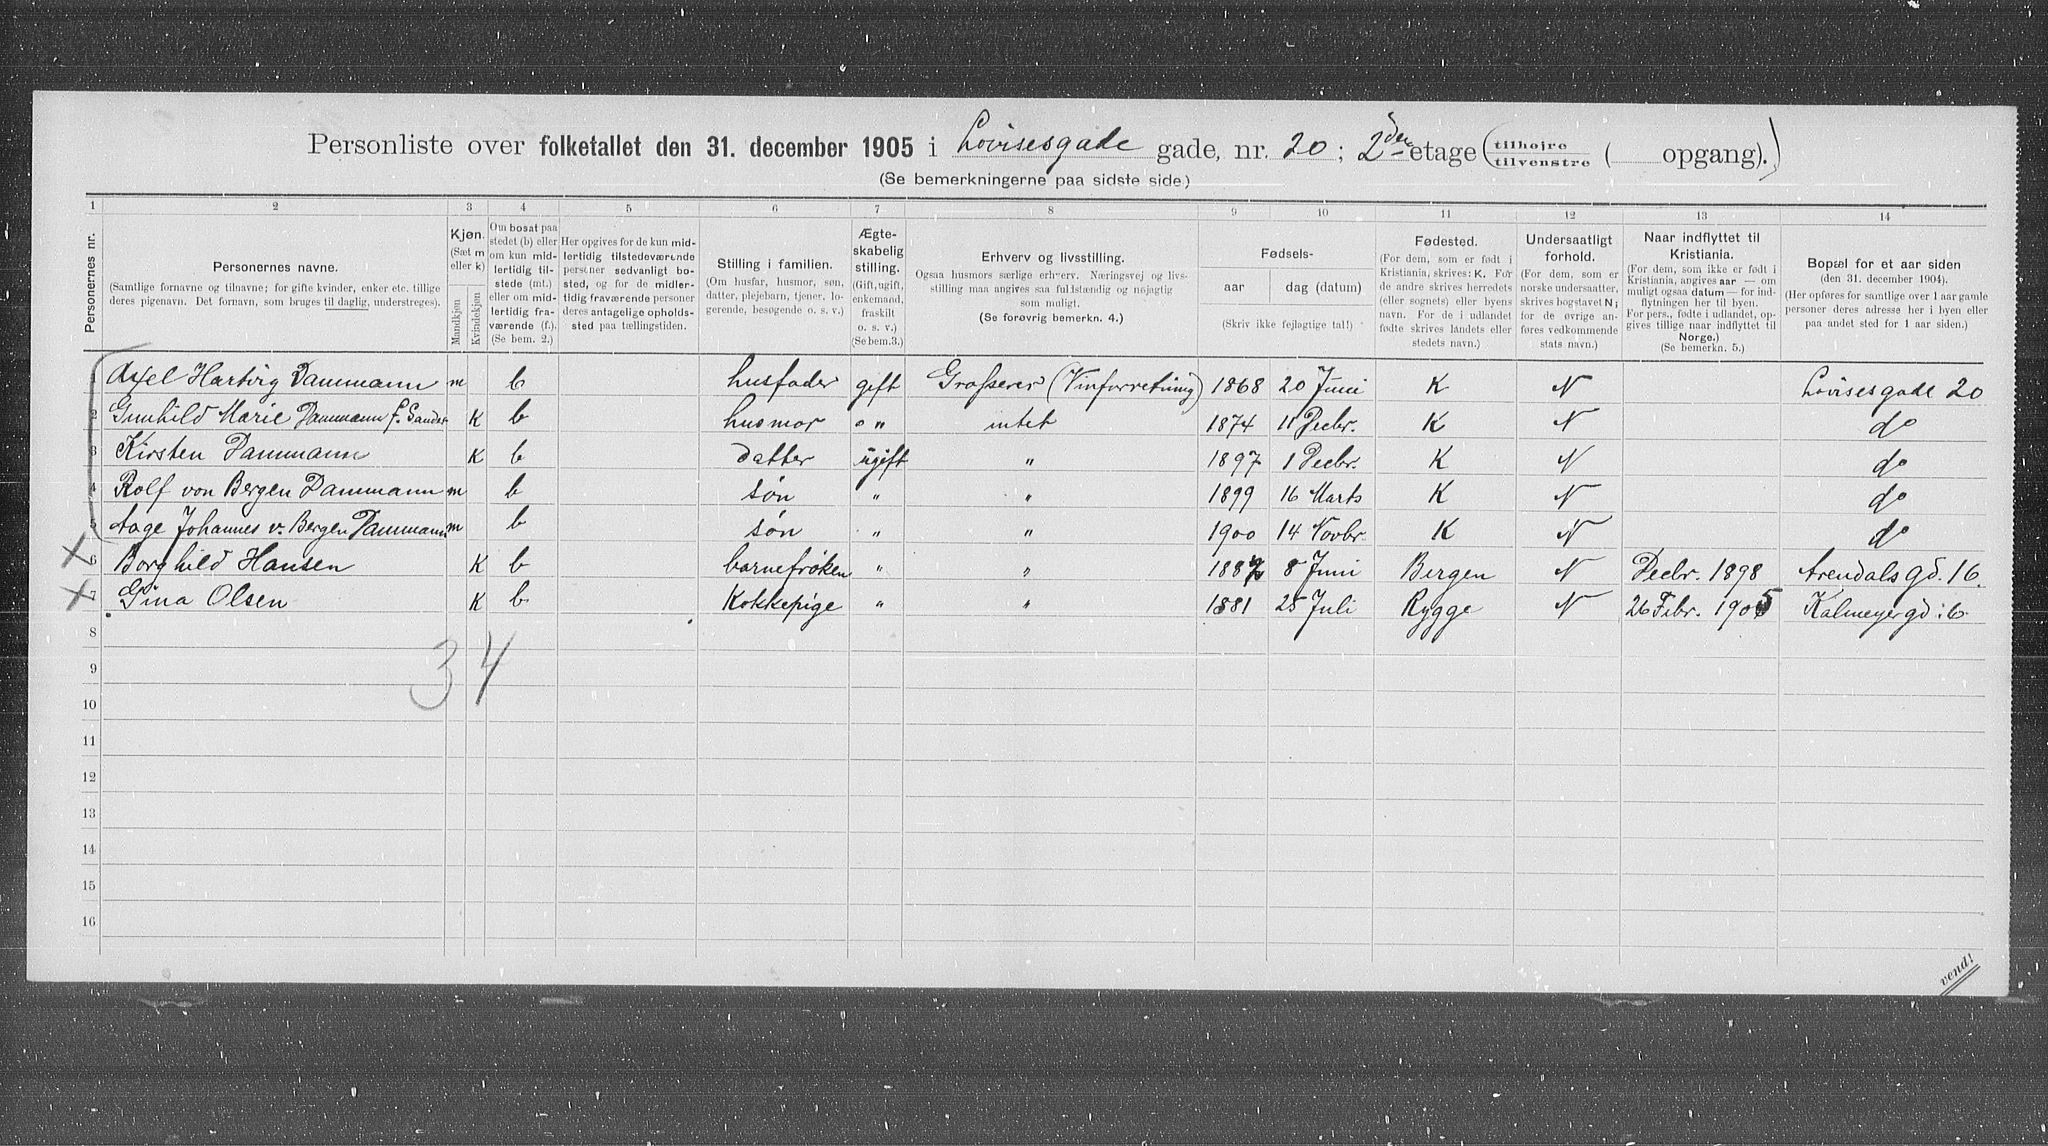 Personliste over folketallet den 31. december 1905 i Lovisesgade gade, nr. 20; 2den etage (tilhøjre tilvenstre ( opgang).)
(Se bemerkningerne paa sidste side)
1 2 3 4 5 6 7 8 9 10 11 12 13 14
Personernes nr.
Personernes navne.
(Samtlige fornavne og tilnavne; for gifte kvinder, enker etc. tillige
deres pigenavn. Det fornavn, som bruges til daglig, understreges).
Kjøn.
(Sæt m
eller k)
Mandkjøn
Kvindekjøn
Om bosat paa
stedet (b) eller
om kun mid-
lertidig til-
stede (mt.)
eller om mid-
lertidig fra-
værende (f.).
(Se bem. 2.)
Her opgives for de kun mid-
lertidig tilstedeværende
personer sedvanligt bo-
sted, og for de midler-
tidig fraværende personer
deres antagelige opholds-
sted paa tællingstiden.
Stilling i familien.
(Om husfar, husmor, søn,
datter, plejebarn, tjener, lo-
gerende, besøgende o. s. v.)
Ægte-
skabelig
stilling.
(Gift, ugift,
enkemand,
fraskilt
o. s. v.)
(Se bem.3.)
Erhverv og livsstilling.
Ogsaa husmors særlige erhverv. Næringsvej og livs-
stilling maa angives saa fuldstændig og nøjagtig
som muligt.
(Se forøvrig bemerkn. 4.)
Fødsels-
aar dag (datum)
(Skriv ikke fejlagtige tal!)
Fødested.
(For dem, som er født i
Kristiania, skrives: K. For
de andre skrives herredets
(eller sognets) eller byens
navn. For de i udlandet
fødte skrives landets eller
stedets navn.)
Undersaatligt
forhold.
(For dem, som er
norske undersaatter,
skrives bogstavet N;
for de øvrige an-
føres vedkommende
stats navn.)
Naar indflyttet til
Kristiania.
(For dem, som ikke er født i
Kristiania, angives aar — om
muligt ogsaa datum — for ind-
flytningen her til byen.
For pers., fødte i udlandet, op-
gives tillige naar indflyttet til
Norge.)
(Se bemerkn. 5.)
Bopæl for et aar siden
(den 31. december 1904).
(Her opføres for samtlige over 1 aar gamle
personer deres adresse her i byen eller
paa andet sted for 1 aar siden.)
1 Axel Hartvig Dammann m b husfader gift Grosserer (Vinforretning) 1868 20 Juni K N Lovisesgade 20
2 Gunhild Marie Dammann f. Sander K b husmor " " intet 1874 11 Decbr. K N do
3 Kirsten Dammann K b datter ugift " 1897 1 Decbr. K N do
4 Rolf von Bergen Dammann m b søn " " 1899 16 Marts K N do
5 Aage Johannes v. Bergen Dammann m b søn " " 1900 14 Novbr. K N do
X 6 Borghild Hansen K b barnefrøken " " 1887 8 Juni Bergen N Decbr. 1898 Arendalsgd. 16.
X 7 Gina Olsen K b Kokkepige " " 1881 25 Juli Rygge N 26 Febr. 1905 Kalmeyergd: 6
8
3 4
9
10
11
12
13
14
15
16
vend!